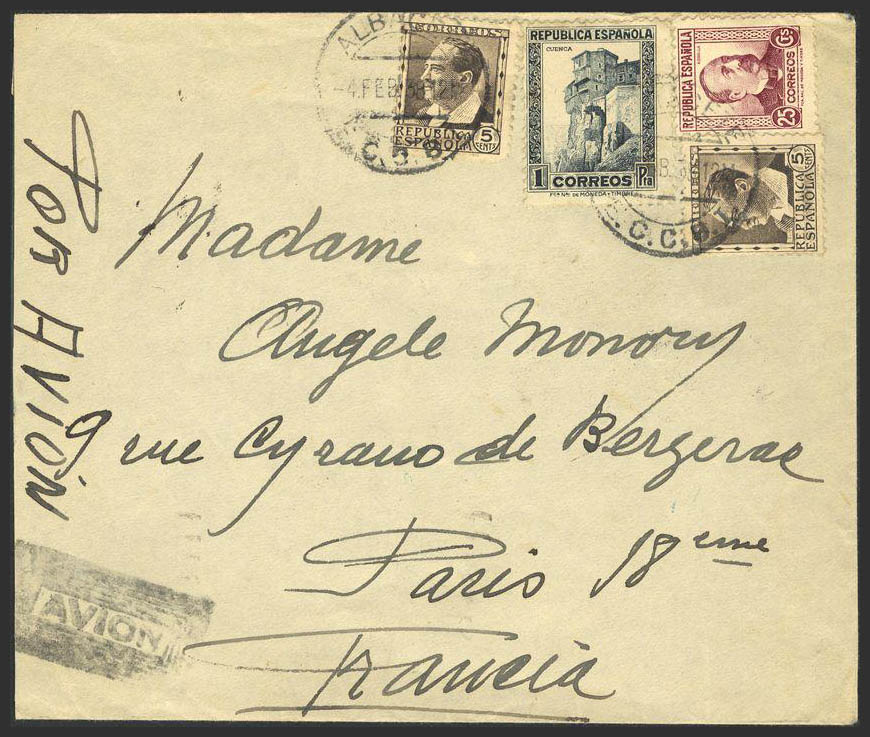 ALBACE
-4.FEB.38 12
C. C. B.
CORREOS
REPUBLICA
ESPAÑOLA
5
CENTS
REPUBLICA ESPAÑOLA
CUENCA
1 CORREOS Pta
FCA. NAL. DE MONEDA Y TIMBRE
REPUBLICA ESPAÑOLA
25 CORREOS Cts.
REPUBLICA
ESPAÑOLA
5
C. C. B.
POR AVION
Madame
Angele Monory
9 rue Cyrano de Bergerac
Paris 18eme
Francia
AVION